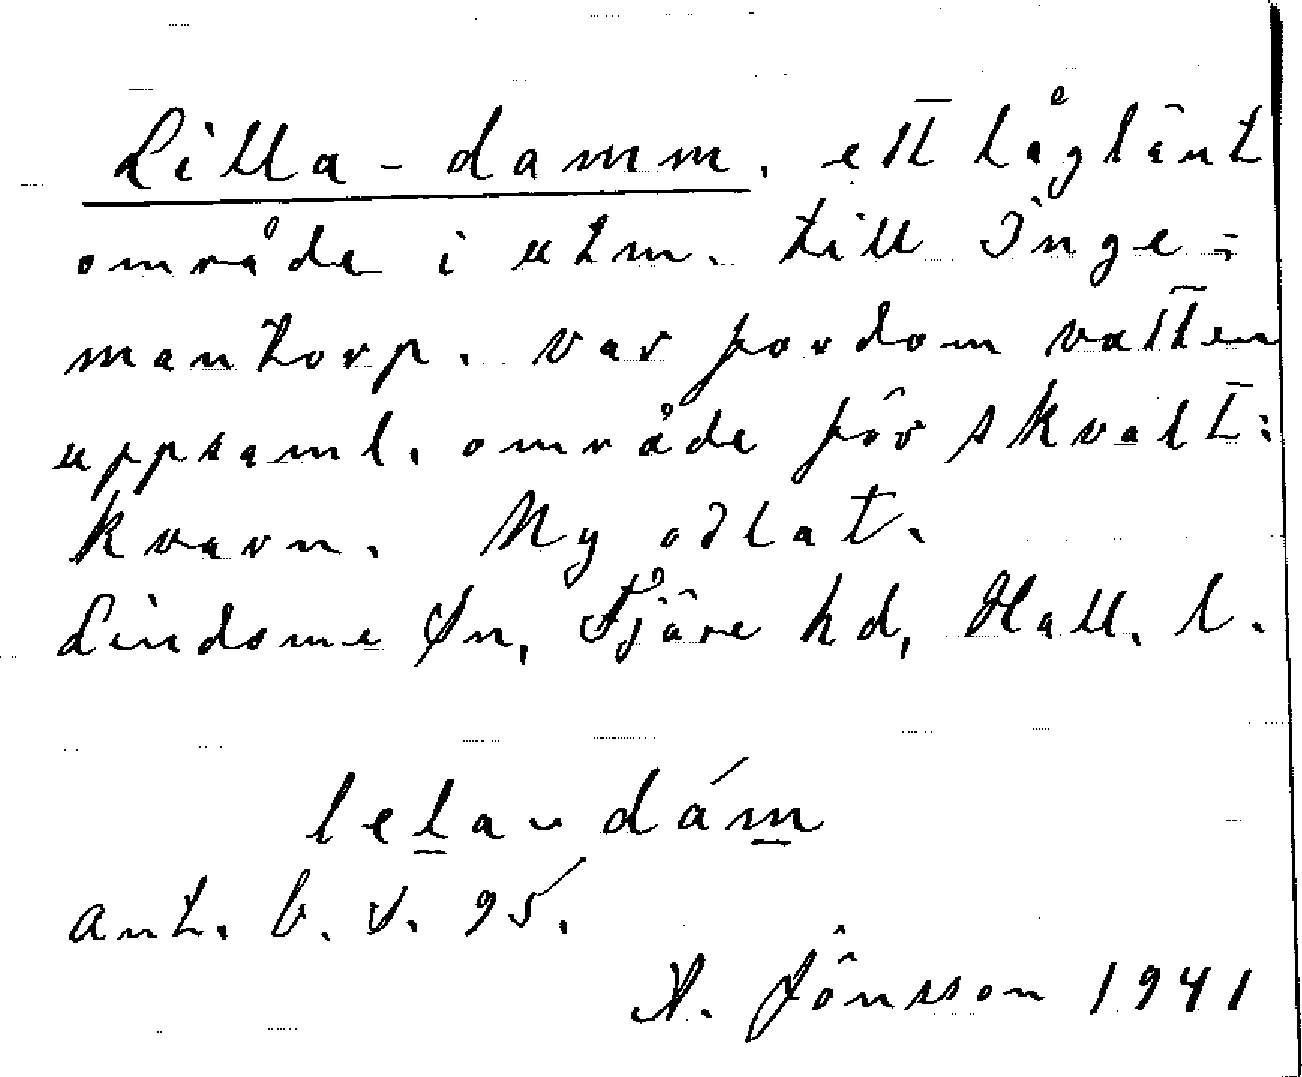 Lilla-damm. ett låglänt
område i utm. till Inge-
mantorp. var fordom vatten
uppsaml. område för skvalt-
kvarn. Ny odlat.
Lindome sn, Fjäre hd, Hall. l.
lela-dám
ant. b. s. 95.
A. Jönsson 1941